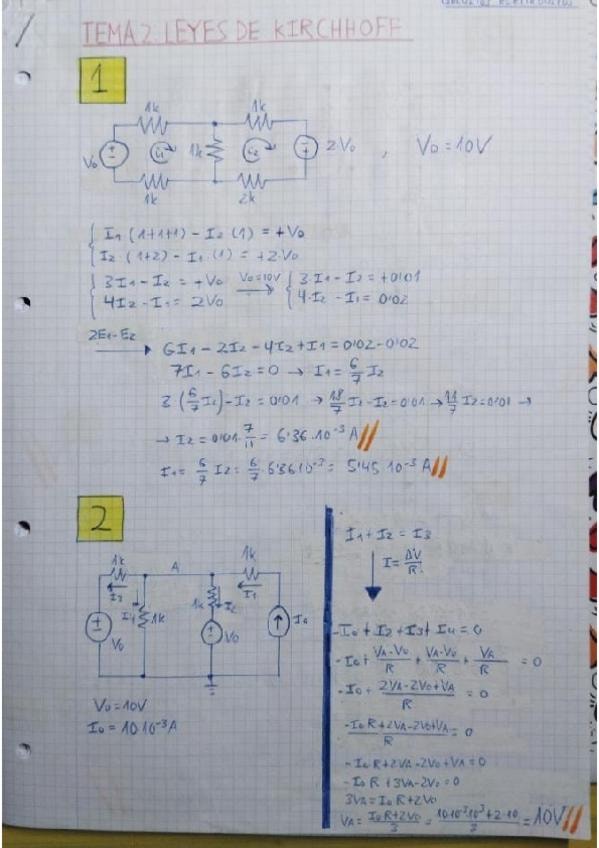 CIRCUITOS ELECTRÓNICOS
TEMA 2 LEYES DE KIRCHHOFF
1
1k 1k
V0 i1 1k i2 2·V0 , V0 = 10V
1k 2k
I1 (1+1+1) - I2 (1) = +V0
I2 · (1+2) - I1 · (1) = +2·V0
3I1 - I2 = +V0 V0=10V 3·I1 - I2 = +0'01
4I2 - I1 = 2V0 → 4·I2 - I1 = 0'02
2E1-E2
→ 6I1 - 2I2 - 4I2 + I1 = 0'02 - 0'02
7I1 - 6I2 = 0 → I1 = 6/7 I2
3·(6/7 I2) - I2 = 0'01 → 18/7 I2 - I2 = 0'01 → 11/7 I2 = 0'01 →
→ I2 = 0'01 · 7/11 = 6'36·10⁻³ A
I1 = 6/7 I2 = 6/7 · 6'36·10⁻³ = 5'45·10⁻³ A
2
1k A 1k
I3 I4 1k 1k I2 I1
V0 V0 I0
V0 = 10V
I0 = 10·10⁻³ A
I1 + I2 = I3
I = ΔV/R
-I0 + I2 + I3 + I4 = 0
-I0 + (VA-V0)/R + (VA-V0)/R + VA/R = 0
-I0 + (2VA-2V0+VA)/R = 0
(-I0R+2VA-2V0+VA)/R = 0
-I0R+2VA-2V0+VA = 0
-I0R+3VA-2V0 = 0
3VA = I0R+2V0
VA = (I0R+2V0)/3 = (10·10⁻³·10³+2·10)/3 = 10V